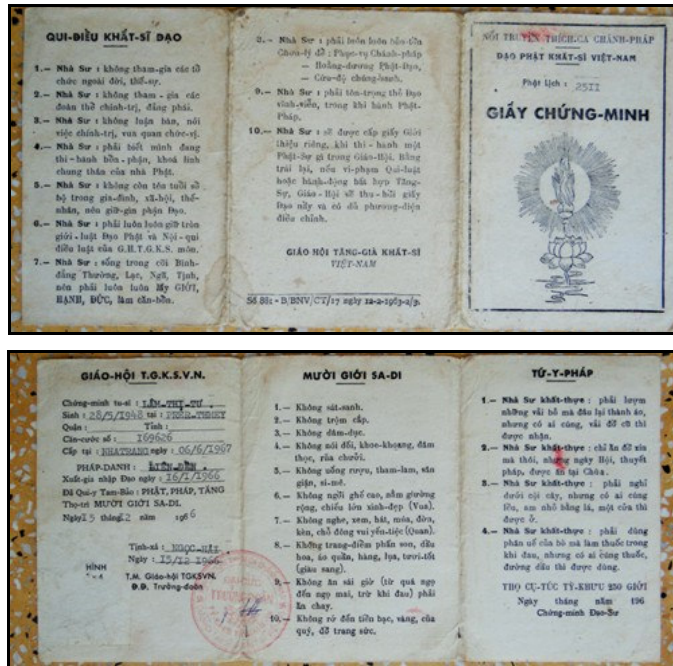 QUI-ĐIỀU KHẤT-SĨ ĐẠO
1.— Nhà Sư : không tham-gia các tổ
chức ngoài đời, thế-sự.
2.— Nhà Sư : không tham - gia các
đoàn thể chính-trị, đảng phái.
3.— Nhà Sư : không luận bàn, nói
việc chính-trị, vua quan chức-vị.
4.— Nhà Sư : phải biết mình đang
thi - hành bổn - phận, khoá linh
chung thân của nhà Phật.
5.— Nhà Sư : không còn tên tuổi sổ
bộ trong gia-đình, xã-hội, thế-
nhân, nên giữ-gìn phận Đạo.
6.— Nhà Sư : phải luôn luôn giữ tròn
giới - luật Đạo Phật và Nội - qui
điều luật của G.H.T.G.K.S. môn.
7.— Nhà Sư : sống trong cõi Bình-
đẳng Thường, Lạc, Ngã, Tịnh,
nên phải luôn luôn lấy GIỚI,
HẠNH, ĐỨC, làm căn-bổn.
8.— Nhà Sư : phải luôn luôn bảo-tồn
Chơn-lý để : Phục-vụ Chánh-pháp
— Hoằng-dương Phật-Đạo,
— Cứu-độ chúng-sanh.
9.— Nhà Sư : phải tôn-trọng thẻ Đạo
vĩnh-viễn, trong khi hành Phật-
Pháp.
10.— Nhà Sư : sẽ được cấp giấy Giới
thiệu riêng, khi thi - hành một
Phật-Sự gì trong Giáo-Hội. Bằng
trái lại, nếu vi-phạm Qui-luật
hoặc hành-động bất hợp Tăng-
Sự, Giáo - Hội sẽ thu - hồi giấy
Đạo nầy và có đủ phương-diện
điều chỉnh.
GIÁO HỘI TĂNG-GIÀ KHẤT-SĨ
VIỆT-NAM
Số 881 - B/BNV/CT/17 ngày 12-2-1963-2/3.
NỐI TRUYỀN THÍCH-CA CHÁNH-PHÁP
ĐẠO PHẬT KHẤT-SĨ VIỆT-NAM
Phật Lịch : 2511
GIẤY CHỨNG-MINH
GIÁO-HỘI T.G.K.S.V.N.
Chứng-minh tu-sĩ : LÂM-THỊ-TƯ
Sinh : 28/5/1948 tại :
Quận : Tỉnh :
Căn-cước số : 169626
Cấp tại : NHATRANG ngày : 06/6/1967
PHÁP-DANH : LIÊN-BỀN
Xuất-gia nhập Đạo ngày : 16/1/1966
Đã Qui-y Tam-Bảo : PHẬT, PHÁP, TĂNG
Thọ-trì MƯỜI GIỚI SA-DI.
Ngày 15 tháng 12 năm 1966
Tịnh-xá : NGỌC-HẢI
Ngày : 15/12/1966
HÌNH
T.M. Giáo-hội TGKSVN.
Đ.Đ. Trưởng-đoàn
TRƯỞNG ĐOÀN
MƯỜI GIỚI SA-DI
1.— Không sát-sanh.
2.— Không trộm cắp.
3.— Không dâm-dục.
4.— Không nói dối, khoe-khoang, đâm
thọc, rủa chưởi.
5.— Không uống rượu, tham-lam, sân
giận, si-mê.
6.— Không ngồi ghế cao, nằm giường
rộng, chiếu lớn xinh-đẹp (Vua).
7.— Không nghe, xem, hát, múa, đờn,
kèn, chỗ đông vui yếu-tiệc (Quan).
8.— Không trang-điểm phấn son, dầu
hoa, áo quần, hàng, lụa, tươi-tốt
(giàu sang).
9.— Không ăn sái giờ (từ quá ngọ
đến ngọ mai, trừ khi đau) phải
ăn chay.
10.— Không rớ đến tiền bạc, vàng, của
quý, đồ trang sức.
TỨ-Y-PHÁP
1.— Nhà Sư khất-thực : phải lượm
những vải bỏ mà đâu lại thành áo,
nhưng có ai cúng, vải đồ cũ thì
được nhận.
2.— Nhà Sư khất-thực : chỉ ăn đồ xin
mà thôi, nhưng ngày Hội, thuyết
pháp, được ăn tại Chùa.
3.— Nhà Sư khất-thực : phải nghỉ
dưới cội cây, nhưng có ai cúng
lều, am nhỏ bằng lá, một cửa thì
được ở.
4.— Nhà Sư khất-thực : phải dùng
phân uế của bò mà làm thuốc trong
khi đau, nhưng có ai cúng thuốc,
đường dầu thì được dùng.
THỌ CỤ-TÚC TỲ-KHƯU 250 GIỚI
Ngày tháng năm 196
Chứng-minh Đạo-Sư